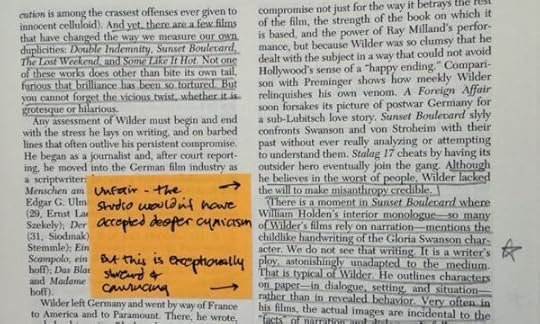 cution is among the crassest offenses ever given to
innocent celluloid). And yet, there are a few films
that have changed the way we measure our own
duplicities: Double Indemnity, Sunset Boulevard,
The Lost Weekend, and Some Like It Hot. Not one
of these works does other than bite its own tail,
furious that brilliance has been so tortured. But
you cannot forget the vicious twist, whether it is
grotesque or hilarious.
Any assessment of Wilder must begin and end
with the stress he lays on writing, and on barbed
lines that often outlive his persistent compromise.
He began as a journalist and, after court report-
ing, he moved into the German film industry as
a scriptwriter:
Menschen am
Edgar G. Ulm
(29, Ernst La
Szekely); Der
(31, Siodmak)
Stemmle); Ein
Scampolo, ein
hoff); Das Bla
and Madame
hoff).
Wilder left Germany and went by way of France
to America and to Paramount. There, he wrote,
Unfair - the
studio wouldn't have
accepted deeper cynicism
But this is exceptionally
shrewd &
convincing
compromise not just for the way it betrays the rest
of the film, the strength of the book on which it
is based, and the power of Ray Milland's perfor-
mance, but because Wilder was so clumsy that he
dealt with the subject in a way that could not avoid
Hollywood's sense of a "happy ending." Compari-
son with Preminger shows how meekly Wilder
relinquishes his own venom. A Foreign Affair
soon forsakes its picture of postwar Germany for
a sub-Lubitsch love story. Sunset Boulevard slyly
confronts Swanson and von Stroheim with their
past without ever really analyzing or attempting
to understand them. Stalag 17 cheats by having its
outsider hero eventually join the gang. Although
he believes in the worst of people, Wilder lacked
the will to make misanthropy credible.
There is a moment in Sunset Boulevard where
William Holden's interior monologue—so many
of Wilder's films rely on narration—mentions the
childlike handwriting of the Gloria Swanson char-
acter. We do not see that writing. It is a writer's
ploy, astonishingly unadapted to the medium.
That is typical of Wilder. He outlines characters
on paper—in dialogue, setting, and situation—
rather than in revealed behavior. Very often in
his films, the actual images are incidental to the
"facts" of narration and